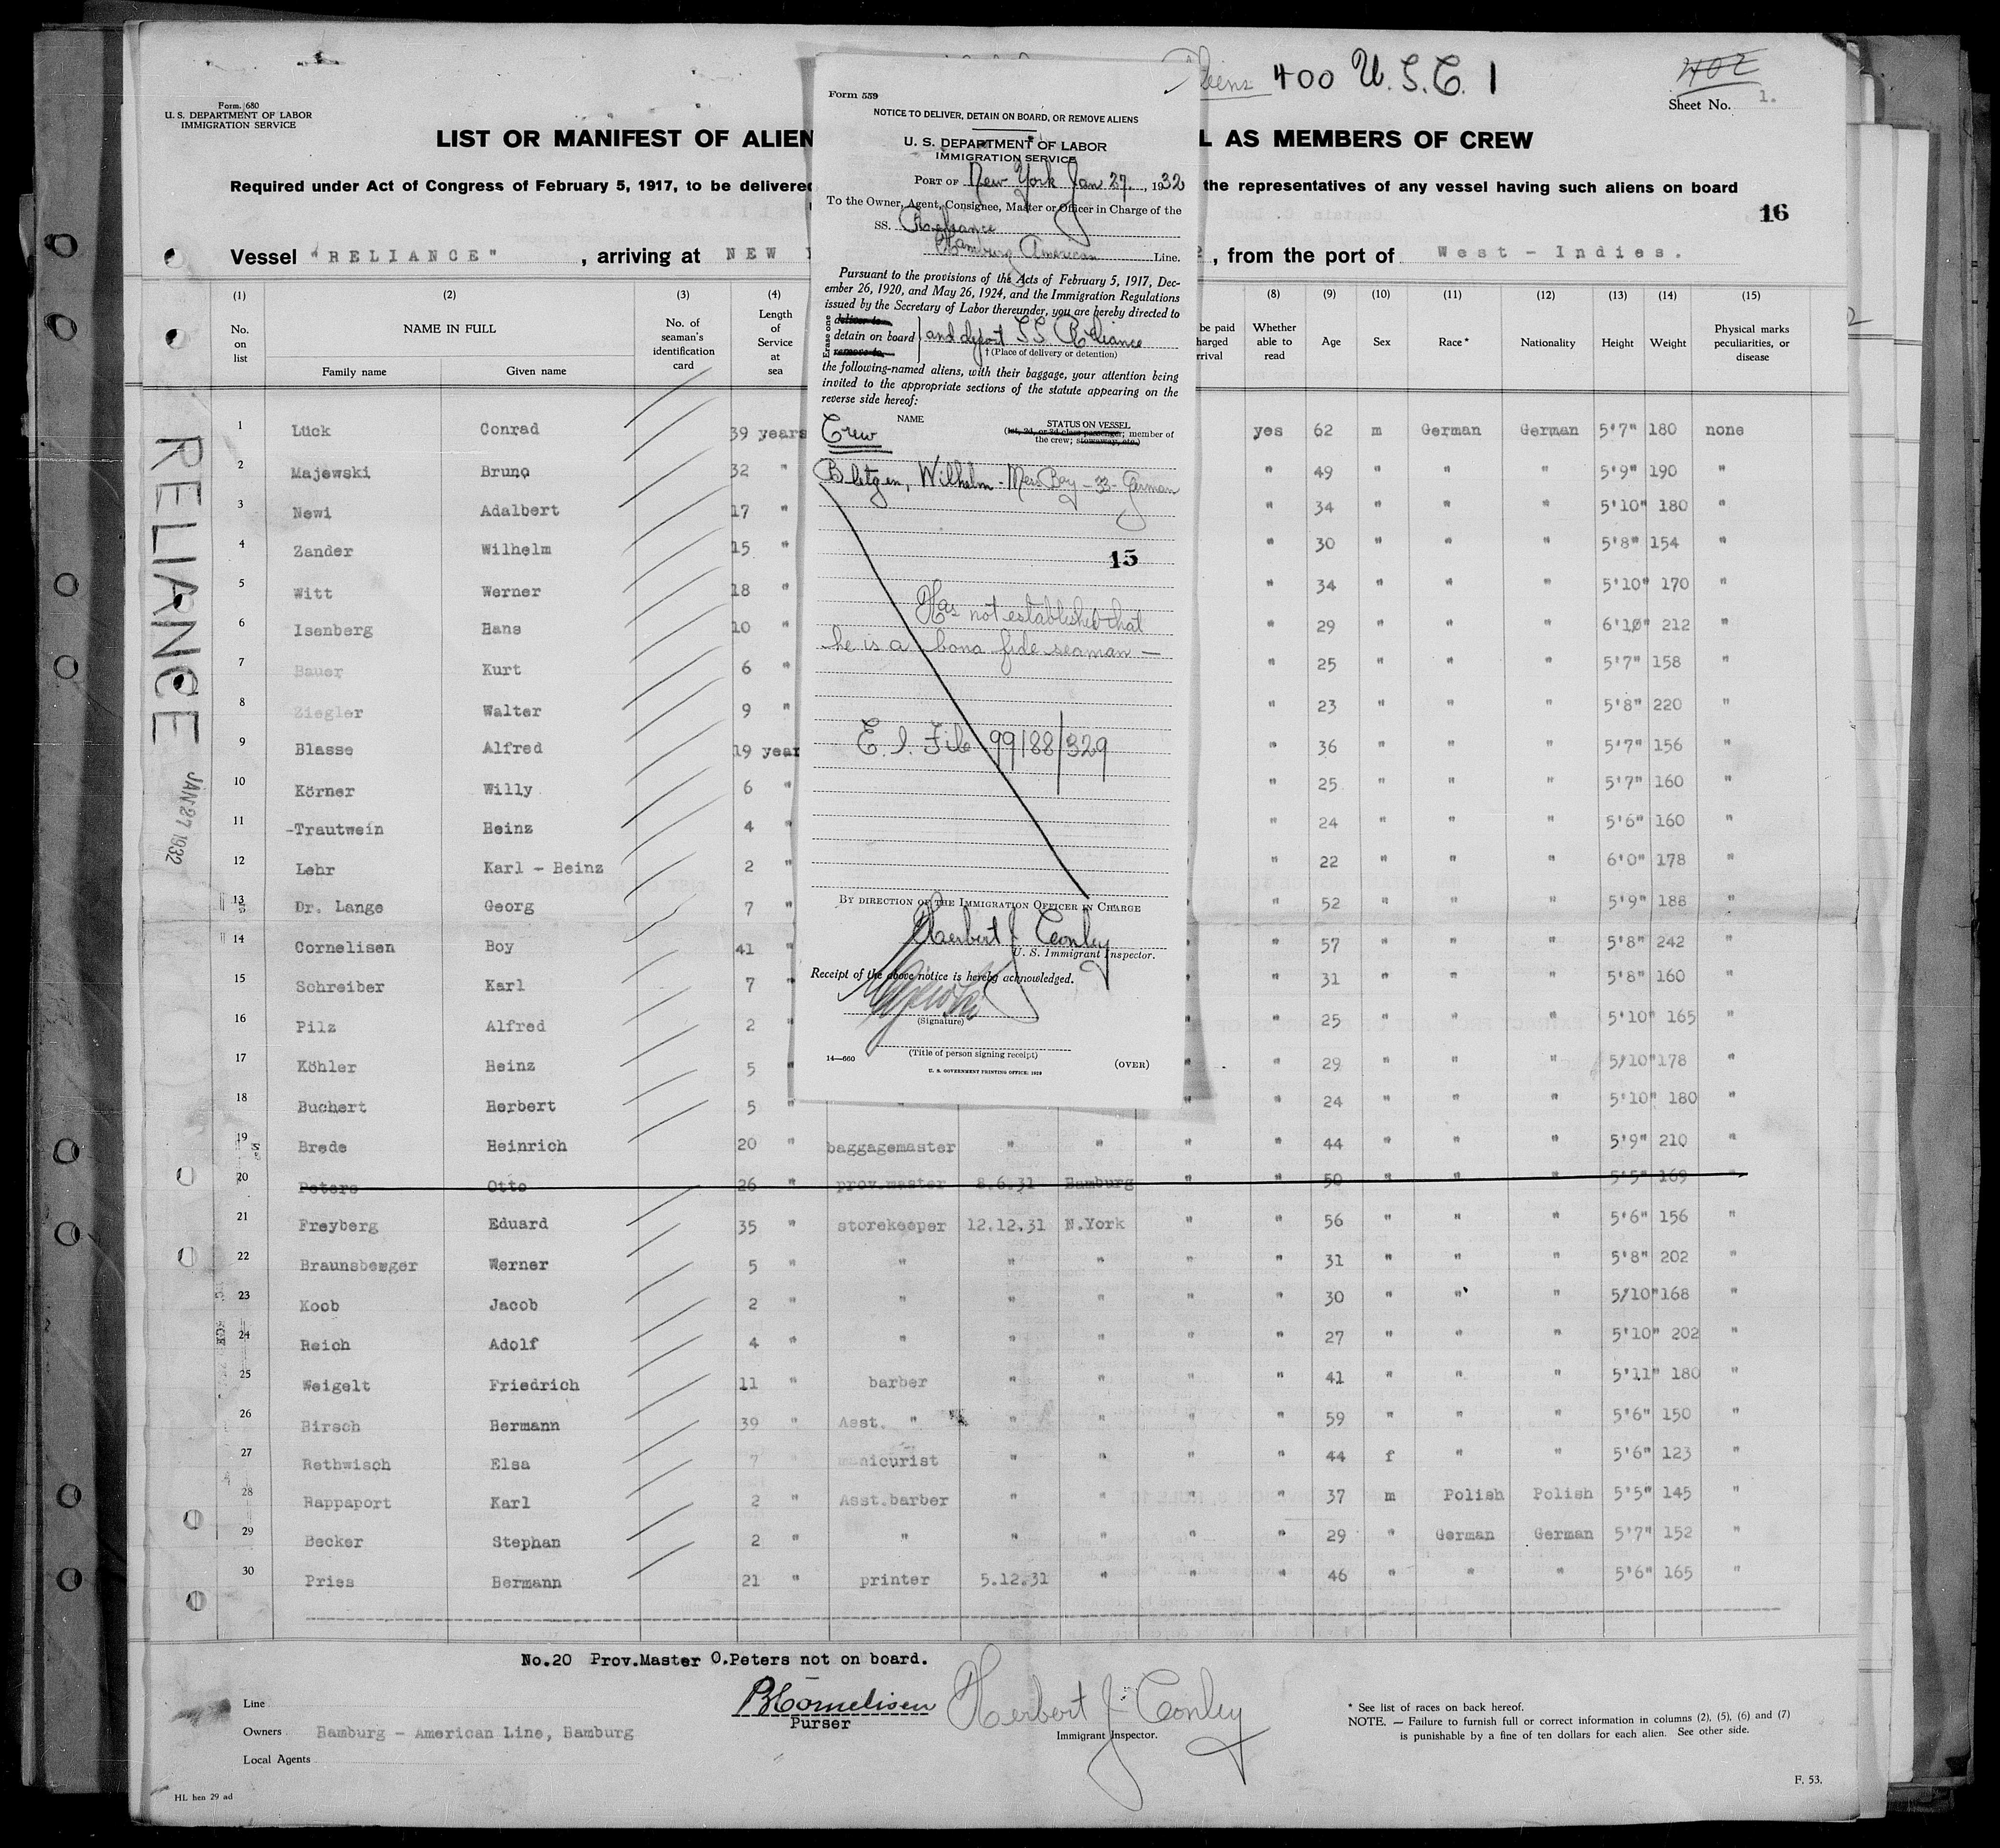 Aliens 400 U. S. C. 1
402
Form 680
U. S. DEPARTMENT OF LABOR
IMMIGRATION SERVICE
Sheet No. 1.
LIST OR MANIFEST OF ALIEN
L AS MEMBERS OF CREW
Required under Act of Congress of February 5, 1917, to be delivered
the representatives of any vessel having such aliens on board
16
Vessel "RELIANCE" , arriving at NEW
, from the port of West - Indies.
RELIANCE
JAN 27 1932
Form 559
NOTICE TO DELIVER, DETAIN ON BOARD, OR REMOVE ALIENS
U. S. DEPARTMENT OF LABOR
IMMIGRATION SERVICE
PORT OF New York Jan 27., 1932
To the Owner, Agent, Consignee, Master or Officer in Charge of the
SS. Reliance
Hamburg American Line.
Pursuant to the provisions of the Acts of February 5, 1917, Dec-
ember 26, 1920, and May 26, 1924, and the Immigration Regulations
issued by the Secretary of Labor thereunder, you are hereby directed to
Erase one
deliver to
detain on board } and deport SS Reliance
remove to
† (Place of delivery or detention)
the following-named aliens, with their baggage, your attention being
invited to the appropriate sections of the statute appearing on the
reverse side hereof:
NAME STATUS ON VESSEL
(1st, 2d, or 3d class passenger; member of
the crew; stowaway, etc.)
Crew
Bletgen, Wilhelm - Mess Boy - 33 - German
15
Has not established that
he is a bona fide seaman —
E. I. File 99188/329
BY DIRECTION OF THE IMMIGRATION OFFICER IN CHARGE
Herbert J Conley
U. S. Immigrant Inspector.
Receipt of the above notice is hereby acknowledged.
(Signature)
(Title of person signing receipt)
14—660 (OVER)
U. S. GOVERNMENT PRINTING OFFICE: 1929
(1) (2) (3) (4) (8) (9) (10) (11) (12) (13) (14) (15)
No. on list NAME IN FULL Family name Given name No. of seaman's identification card Length of Service at sea be paid harged rrival Whether able to read Age Sex Race* Nationality Height Weight Physical marks peculiarities, or disease
1 Lück Conrad 39 years yes 62 m German German 5'7" 180 none
2 Majewski Bruno 32 " " 49 " " " 5'9" 190 "
3 Newi Adalbert 17 " " 34 " " " 5'10" 180 "
4 Zander Wilhelm 15 " " 30 " " " 5'8" 154 "
5 Witt Werner 18 " " 34 " " " 5'10" 170 "
6 Isenberg Hans 10 " " 29 " " " 6'10" 212 "
7 Bauer Kurt 6 " " 25 " " " 5'7" 158 "
8 Ziegler Walter 9 " " 23 " " " 5'8" 220 "
9 Blasse Alfred 19 year " 36 " " " 5'7" 156 "
10 Körner Willy 6 " " 25 " " " 5'7" 160 "
11 -Trautwein Heinz 4 " " 24 " " " 5'6" 160 "
12 Lehr Karl - Heinz 2 " " 22 " " " 6'0" 178 "
13 Dr. Lange Georg 7 " " 52 " " " 5'9" 188 "
14 Cornelisen Boy 41 " " 57 " " " 5'8" 242 "
15 Schreiber Karl 7 " " 31 " " " 5'8" 160 "
16 Pilz Alfred 2 " " 25 " " " 5'10" 165 "
17 Köhler Heinz 5 " " " 29 " " " 5/10" 178 "
18 Buchert Herbert 5 " " " " 24 " " " 5'10" 180 "
19 Brede Heinrich 20 " baggagemaster " " " " 44 " " " 5'9" 210 "
20 Peters Otto 26 " prov.master 8.6.31 Hamburg " " 50 " " " 5'5" 169 "
21 Freyberg Eduard 35 " storekeeper 12.12.31 N.York " " 56 " " " 5'6" 156 "
22 Braunsberger Werner 5 " " " " " " 31 " " " 5'8" 202 "
23 Koob Jacob 2 " " " " " " 30 " " " 5/10" 168 "
24 Reich Adolf 4 " " " " " " 27 " " " 5'10" 202 "
25 Weigelt Friedrich 11 " barber " " " " 41 " " " 5'11" 180 "
26 Hirsch Hermann 39 " Asst. " " " " " 59 " " " 5'6" 150 "
27 Rethwisch Elsa 7 " manicurist " " " " 44 f " " 5'6" 123 "
28 Rappaport Karl 2 " Asst.barber " " " " 37 m Polish Polish 5'5" 145 "
29 Becker Stephan 2 " " " " " " 29 " German German 5'7" 152 "
30 Pries Hermann 21 " printer 5.12.31 " " " 46 " " " 5'6" 165 "
No.20 Prov.Master O.Peters not on board.
Line
Owners Hamburg - American Line, Hamburg
Local Agents
BCornelisen
Purser
Herbert J Conley
Immigrant Inspector.
* See list of races on back hereof.
NOTE. — Failure to furnish full or correct information in columns (2), (5), (6) and (7)
is punishable by a fine of ten dollars for each alien. See other side.
HL hen 29 ad
F. 53.